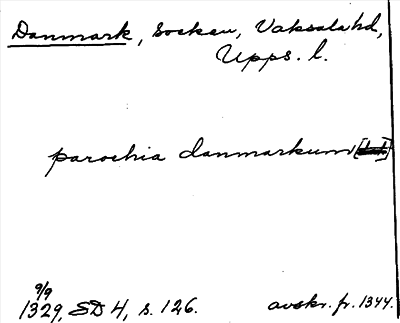 Danmark, socken, Vaksala hd,
Upps. l.
parochia danmarkum
9/9
1329, SD 4, s. 126.
avskr. fr. 1344.